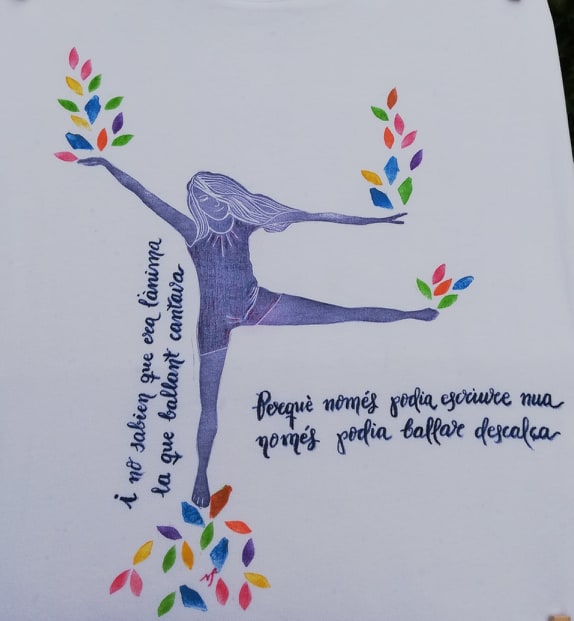 i no sabien que era l'ànima
la que ballant cantava
Perquè només podia escriure nua
només podia ballar descalça